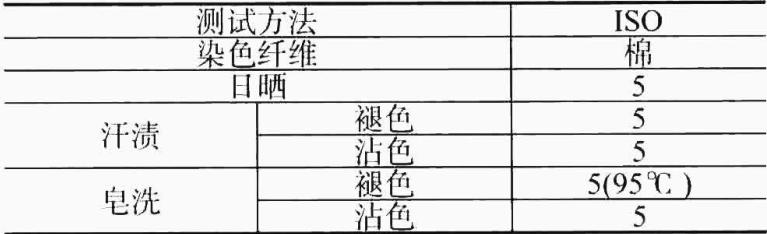 测试方法 ISO
染色纤维 棉
日晒 5
汗渍 褪色 5
沾色 5
皂洗 褪色 5(95℃)
沾色 5